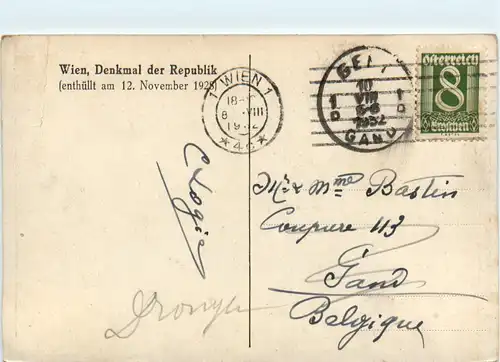 Wien, Denkmal der Republik
(enthüllt am 12. November 1928)
1 WIEN 1
18-
8 VIII
1932
GENT
10
VIII
1932
1D 1D
GAND
Österreich
8
Groschen
C Logie
Mr & Mme Bastin
Coupure 113
Gand
Belgique